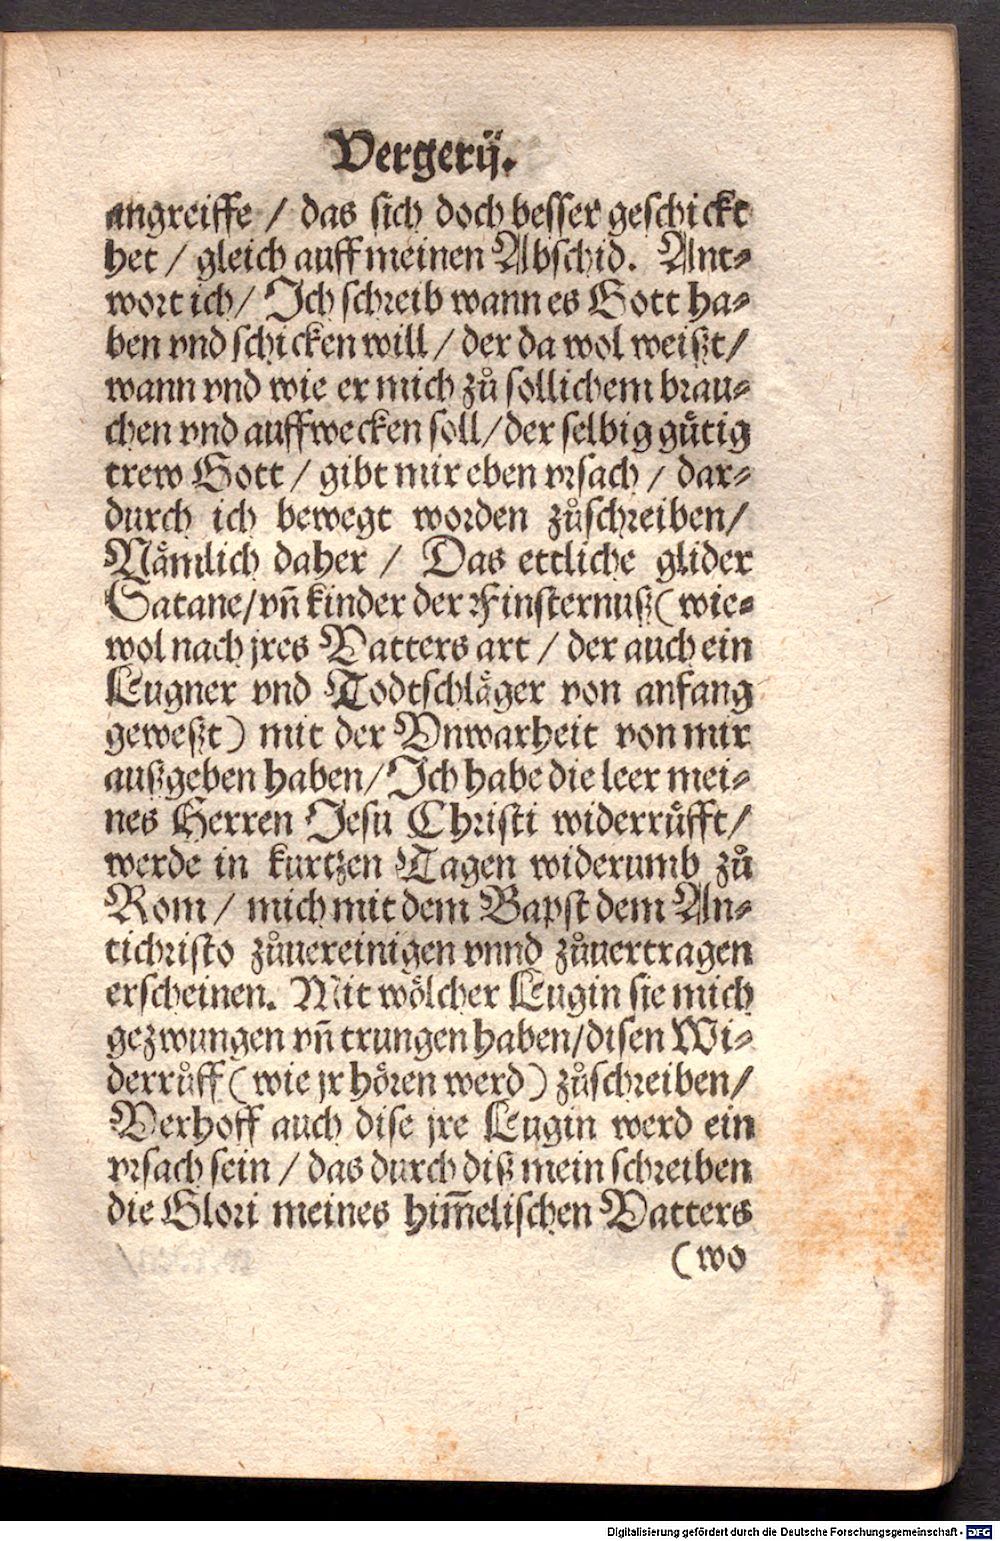 Vergerij.
angreiffe / das sich doch besser geschickt
het / gleich auff meinen Abschid. Ant⸗
wort ich / Ich schreib wann es Gott ha⸗
ben vnd schicken will / der da wol weißt /
wann vnd wie er mich zů sollichem brau⸗
chen vnd auffwecken soll / der selbig gůtig
trew Gott / gibt mir eben vrsach / dar⸗
durch ich bewegt worden zůschreiben /
Nåmlich daher / Das ettliche glider
Satane / vñ kinder der Finsternuß (wie⸗
wol nach jres Vatters art / der auch ein
Lugner vnd Todtschlåger von anfang
geweßt) mit der Vnwarheit von mir
außgeben haben / Ich habe die leer mei⸗
nes Herren Jesu Christi widerrůfft /
werde in kurtzen Tagen widerumb zů
Rom / mich mit dem Bapst dem An⸗
tichristo zůuereinigen vnnd zůuertragen
erscheinen. Mit wölcher Lugin sie mich
gezwungen vñ trungen haben / disen Wi⸗
derrůff (wie jr hören werd) zůschreiben /
Verhoff auch dise jre Lugin werd ein
vrsach sein / das durch diß mein schreiben
die Glori meines him̃elischen Vatters
(wo
Digitalisierung gefördert durch die Deutsche Forschungsgemeinschaft - DFG